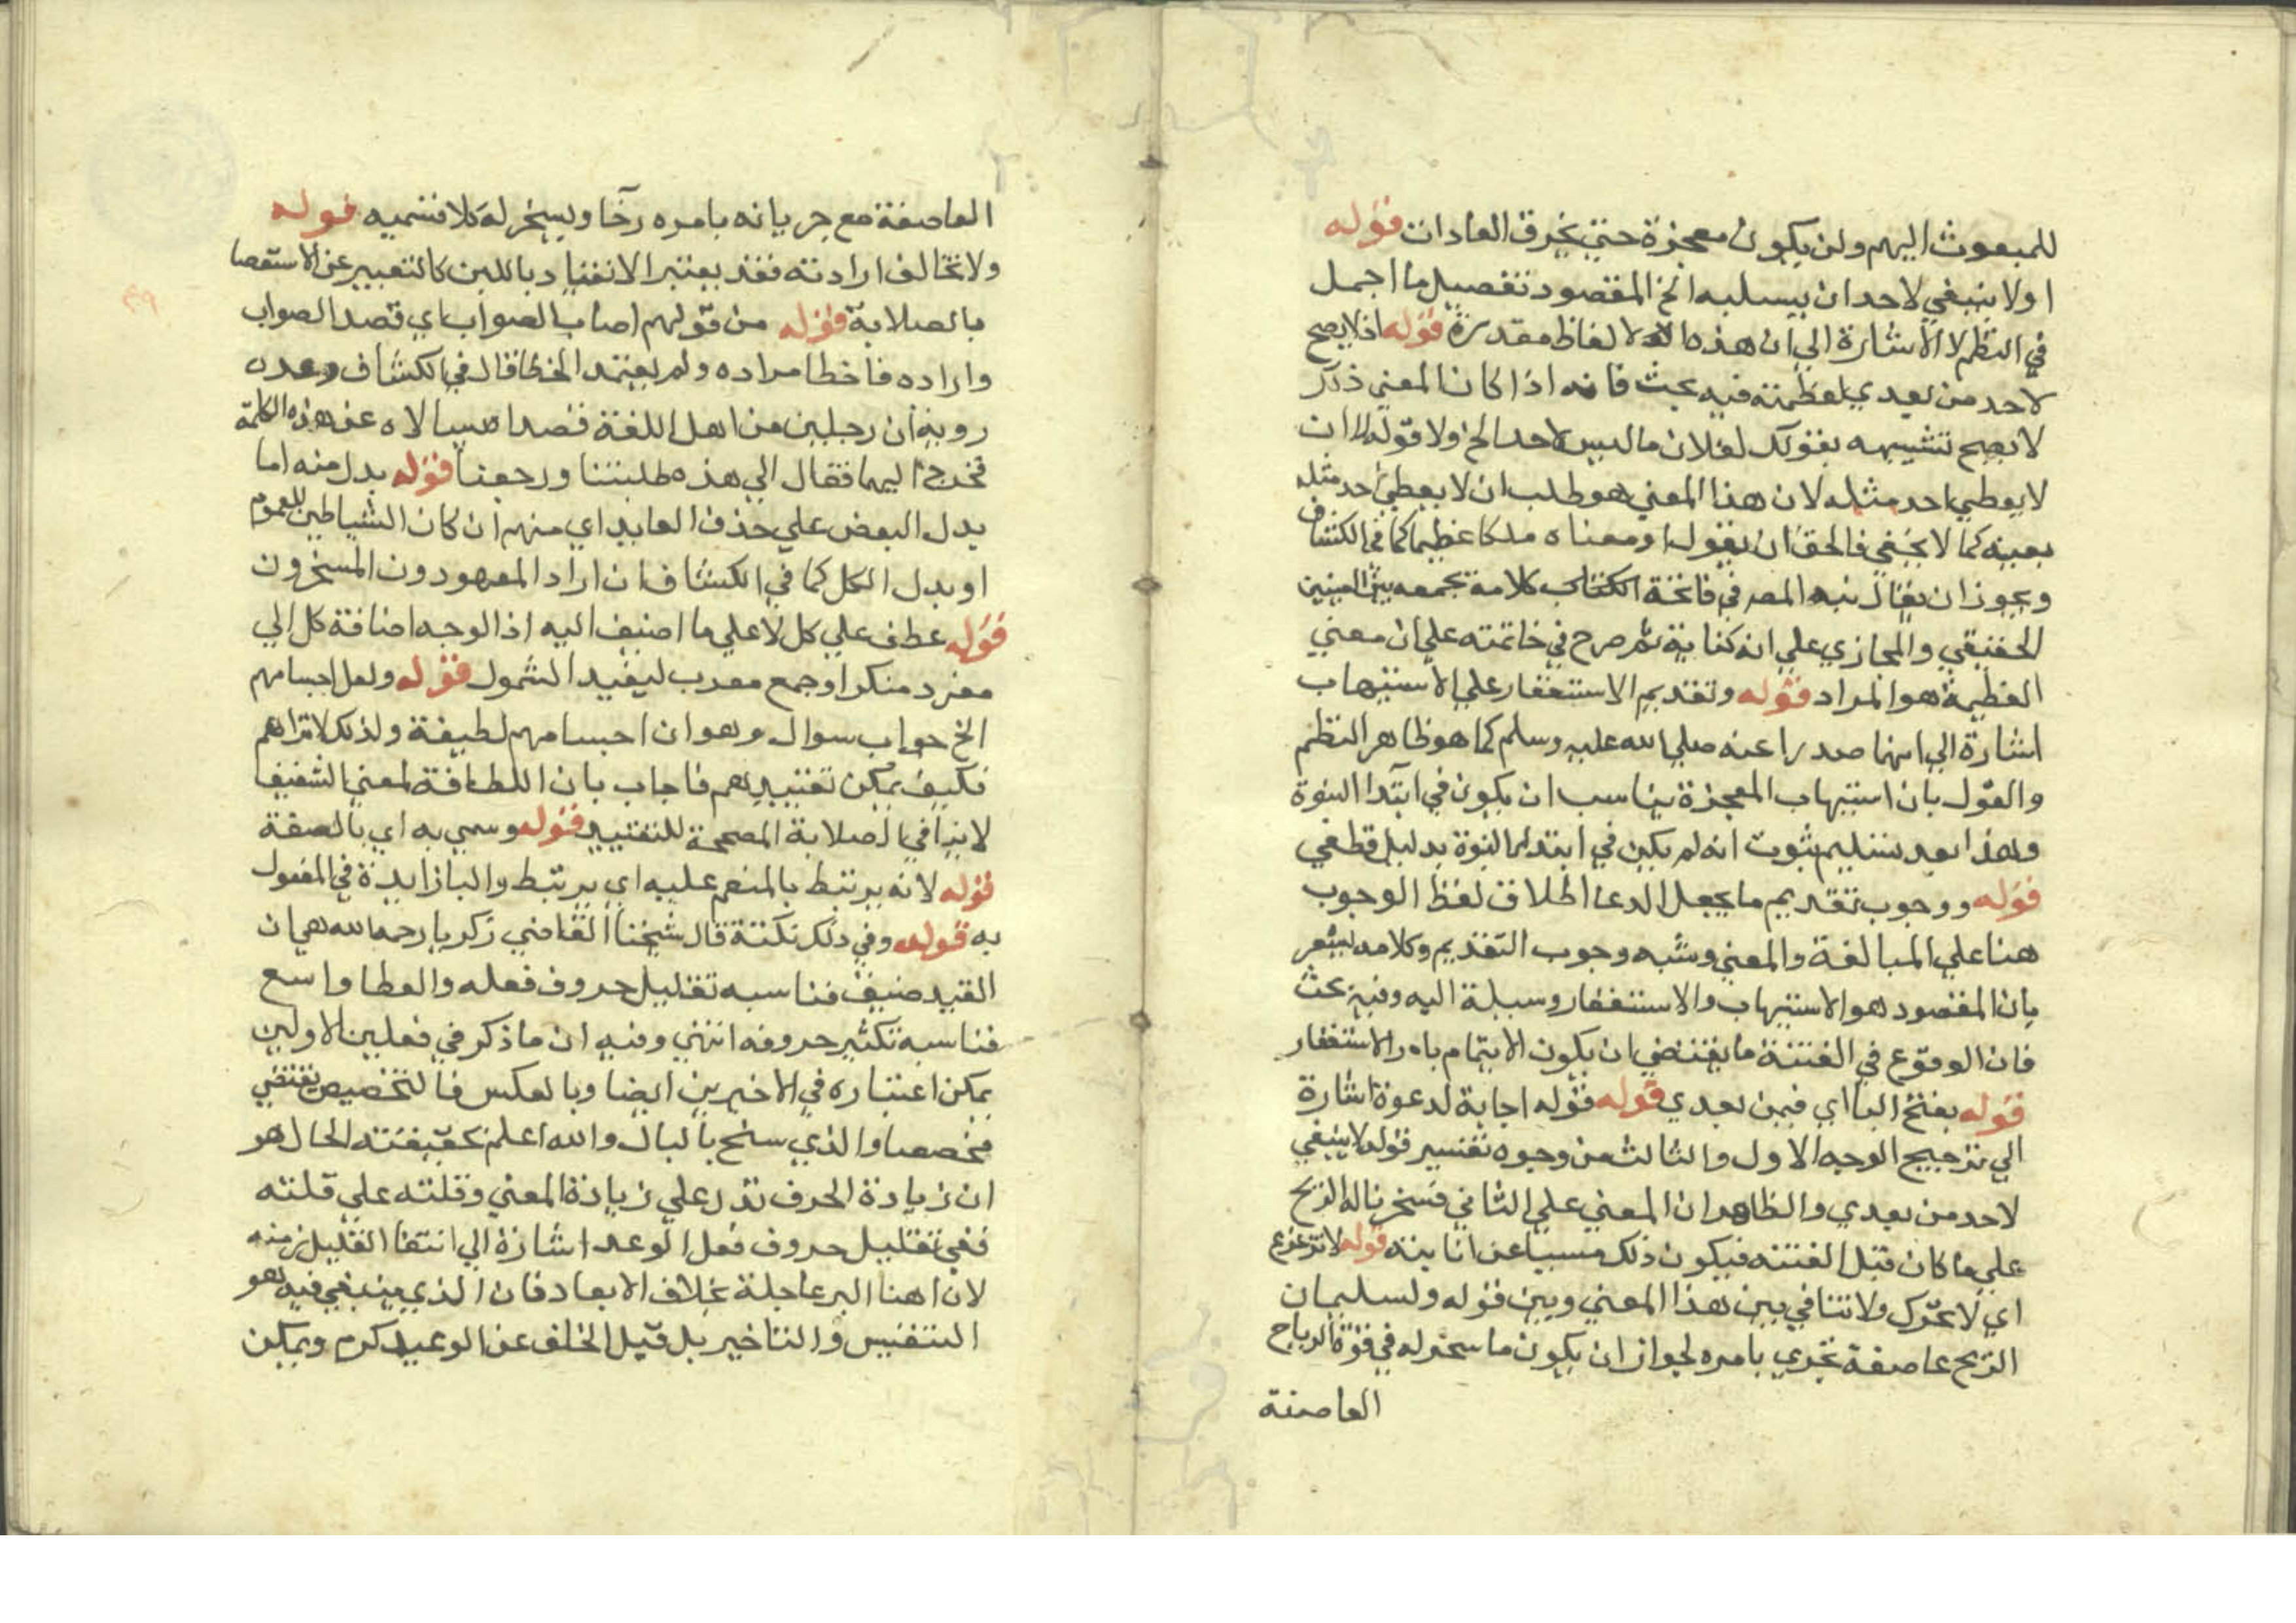 للمبعوث اليهم ولن يكون معجزة حتي يخرق العادات قوله
اولا ينبغي لاحد ان يسلبه الخ المقصود تفصيل ما اجمل
في النظم لا الاشارة الي ان هذه الالفاظ مقدرة قوله اذ لا يصح
لاحد من بعدي لعظمته فيه بحث فانه اذا كان المعني ذلك
لا يصح تشبيهه بقولك لفلان ما ليس لاحد الخ ولا قوله ان
لا يعطي احد مثله لان هذا المعني هو طلب ان لا يعطي احد مثله
بعينه كما لا يخفي فالحق ان يقول او معناه ملكا عظيما كما في الكشاف
ويجوز ان يقال نبه المصر في فاتحة الكتاب كلامه بجمعه بين المعنيين
الحقيقي والمجازي علي انه كناية ثم صرح في خاتمته علي ان معني
العظيمة هو المراد قوله وتقديم الاستغفار علي الاستيهاب
اشارة الي انهما صدرا عنه صلي الله عليه وسلم كما هو ظاهر النظم
والقول بان استيهاب المعجزة يناسب ان يكون في ابتدا النبوة
وهذا بعد تسليم ثبوت انه لم يكن في ابتدا النبوة بدليل قطعي
قوله ووجوب تقديم ما يجعل الدعا اطلاق لفظ الوجوب
هنا علي المبالغة والمعني وشبه وجوب التقديم وكلامه يشعر
بان المقصود هو الاستيهاب والاستغفار وسيلة اليه وفيه بحث
فان الوقوع في الفتنة ما يقتضي ان يكون الاهتمام بامر الاستغفار
قوله بفتح اليا اي فيمن بعدي قوله قوله اجابة لدعوة اشارة
الي ترجيح الوجه الاول والثالث من وجوه تفسير قوله لا ينبغي
لاحد من بعدي والظاهر ان المعني علي الثاني فسخرنا له الريح
علي ما كان قبل الفتنه فيكون ذلك مسببا عن انابته قوله لا تزعزع
اي لا تحرك ولا تنافي بين هذا المعني وبين قوله ولسليمان
الريح عاصفة تجري بامره لجواز ان يكون ما سخر له في قوة الرياح
العاصفة
العاصفة مع جريانه بامره رخا ويسخر له كلا قسميه قوله
ولا تخالف ارادته فقد يعتبر الانقياد باللين كالتعبير عن الاستعصا
بالصلابة قوله من قولهم اصاب الصواب اي قصد الصواب
واراده فاخطا مراده ولم يعتمد الخطا قال في الكشاف وعده
روبة ان رجلين من اهل اللغة قصداه يسالاه عن هذه الكلمة
فخرج اليهما فقال الي هذه طلبتنا ورجعنا قوله بدل منه اما
بدل البعض علي حذف العايد اي منهم ان كان الشياطين للعموم
او بدل الكل كما في الكشاف ان اراد المعهودون المسخرون
قوله عطف علي كل لا علي ما اضيف اليه اذ الوجه اضافة كل الي
مفرد منكر او جمع معرب ليفيد الشمول قوله ولعل اجسامهم
الخ جواب سوال وهو ان اجسامهم لطيفة ولذلك لا تراهم
فكيف يمكن تقييدهم فاجاب بان اللطافة لمعني الشفيف
لا ينافي الصلابة المصححة للتقييد قوله وسمي به اي بالصفة
قوله لانه يرتبط بالمنعم عليه اي يرتبط والبا زايدة في المفعول
به قوله وفي ذلك نكتة قال شيخنا القاضي زكريا رحمه الله هي ان
القيد ضيق فناسبه تقليل حروف فعله والعطا واسع
فناسبه تكثير حروفه انتهي وفيه ان ما ذكر في فعلين الاولين
يمكن اعتباره في الاخيرين ايضا وبالعكس فالتخصيص يقتضي
مخصصا والذي سنح بالبال والله اعلم بحقيقته الحال هو
ان زيادة الحرف تدل علي زيادة المعني وقلته علي قلته
ففي تقليل حروف فعل الوعد اشارة الي انتفا القليل زمنه
لان اهنا البر عاجلة بخلاف الايعاد فان الذي ينبغي فيه هو
التنفيس والتاخير بل قيل الخلف عن الوعيد كرم ويمكن